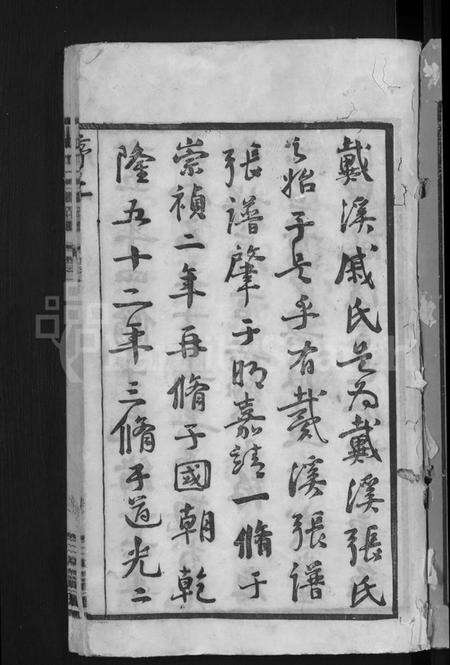 戴溪戚氏是為戴溪張氏
之始于是乎有戴溪張譜
張譜肇于明嘉靖一脩于
崇禎二年再脩于國朝乾
隆五十二年三脩于道光二
序二